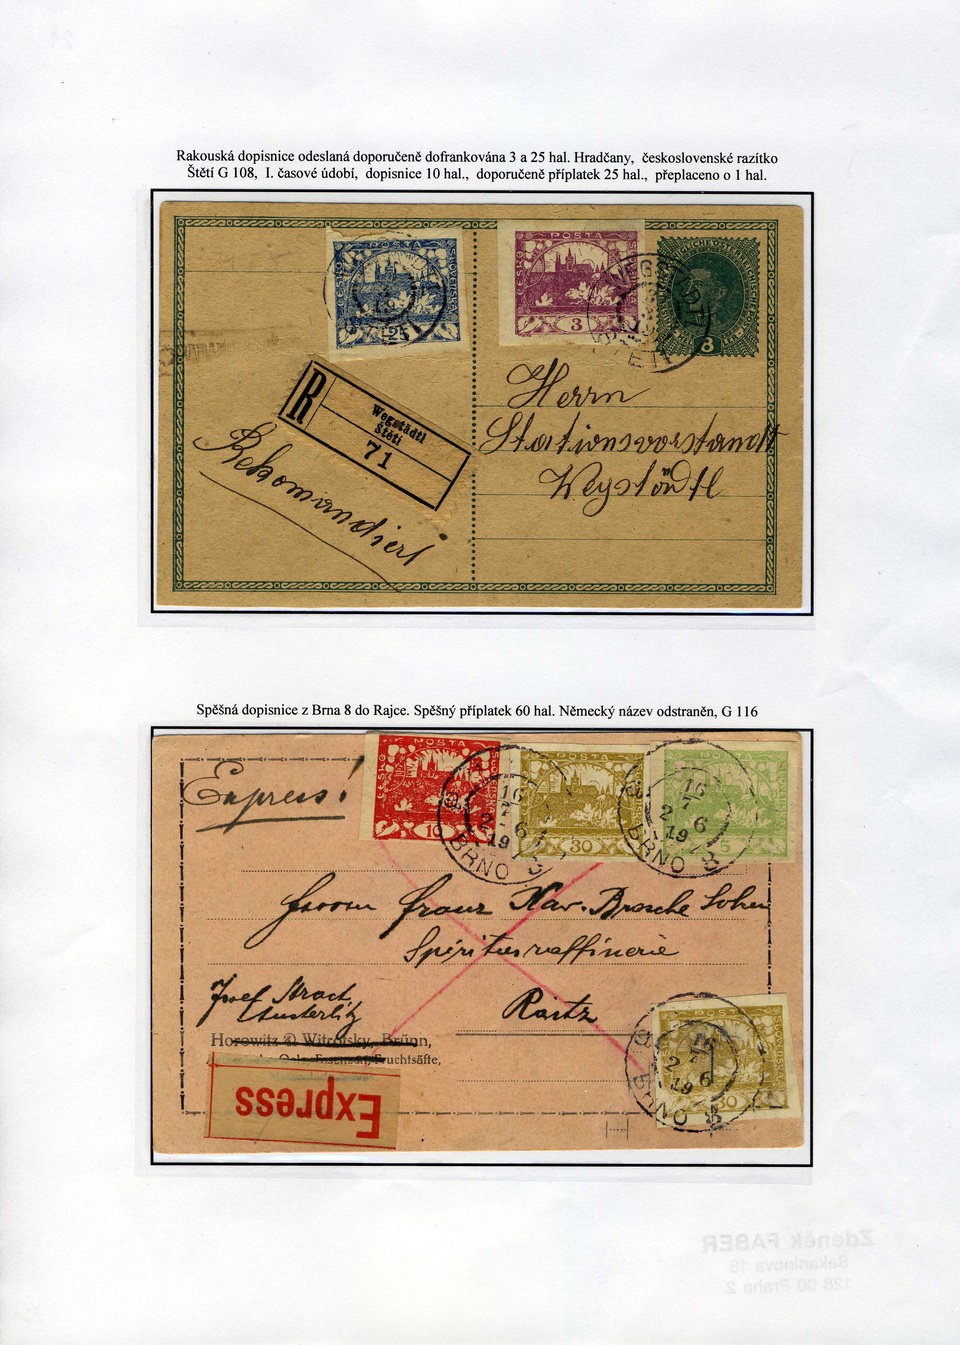 Rakouská dopisnice odeslaná doporučeně dofrankována 3 a 25 hal. Hradčany, československé razítko
Štětí G 108, I. časové údobí, dopisnice 10 hal., doporučeně příplatek 25 hal., přeplaceno o 1 hal.
POSTA
ČESKO
SLOVENSKÁ
25
POSTA
ČESKO
SLOVENSKÁ
3
8
WEGSTÄDTL
ŠTĚTÍ
R
Wegstädtl
Štětí
71
Rekomandiert
Herrn
Stationsvorstandt
Wegstädtl
Spěšná dopisnice z Brna 8 do Rajce. Spěšný příplatek 60 hal. Německý název odstraněn, G 116
Express!
POSTA
ČESKO
SLOVENSKÁ
10
30
5
16
2 7 6
19
BRNO 8
16
2 7 6
19
BRNO 8
Herrn Franz Xav. Brosche Sohn
Spiritusraffinerie
Raitz
Josef Strach
Austerlitz
Horowitz & Witrofsky, Brünn,
Fruchtsäfte,
Express
30
BRNO
Zdeněk FABER
128 00 Praha 2